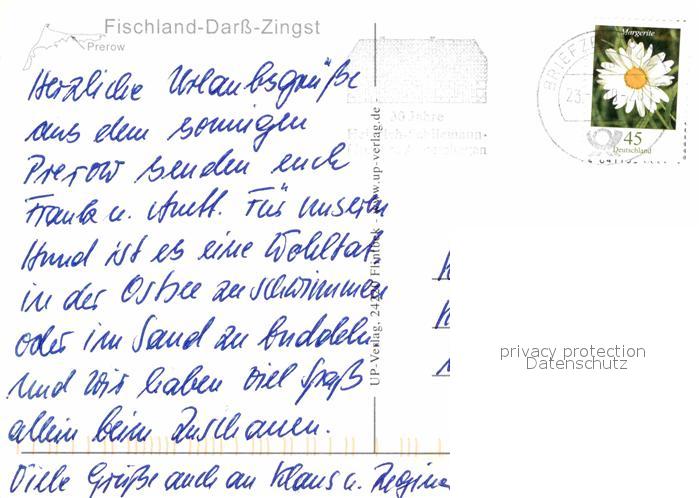 Fischland-Darß-Zingst
Prerow
Herzliche Urlaubsgrüße
aus dem sonnigen
Prerow senden euch
Frank u. Anett. Für unseren
Hund ist es eine Wohltat
in der Ostsee zu schwimmen
oder im Sand zu buddeln
und wir haben viel Spaß
allein beim Zuschauen.
Viele Grüße auch an Klaus u. Regina
UP-Verlag, 24220 Flintbek - www.up-verlag.de
30 Jahre
Heinrich-Schliemann-
BRIEFZE
23.
Margerite
45
Deutschland
privacy protection
Datenschutz